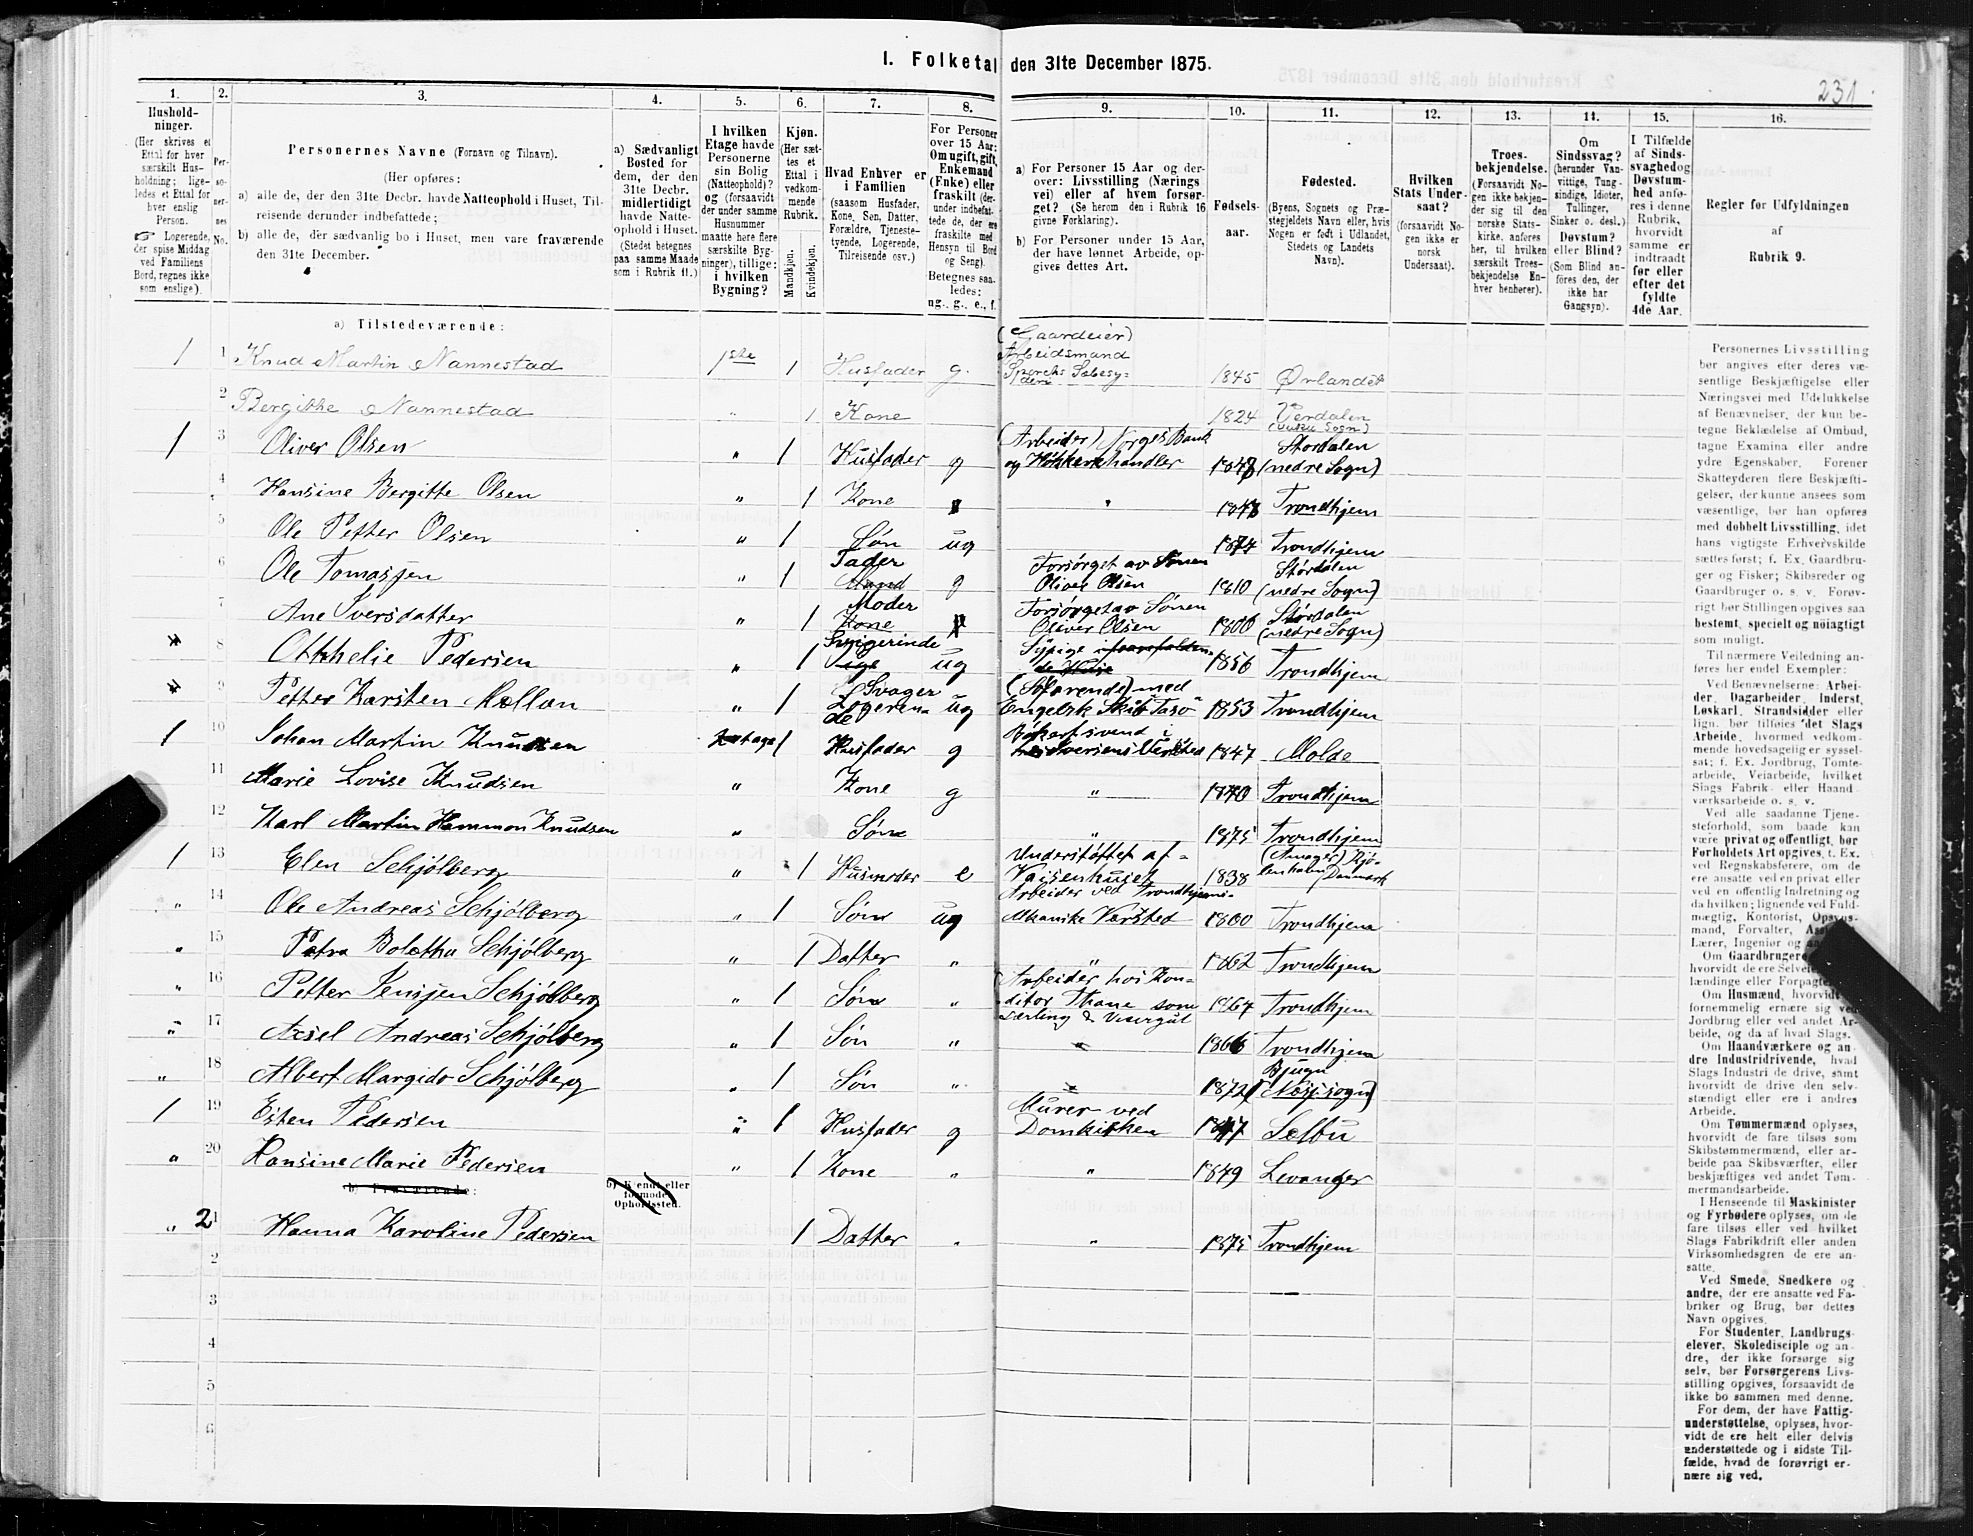 I. Folketal den 31te December 1875.
231
1.
2.
3.
4.
5.
6.
7.
8.
9.
10.
11.
12.
13.
14.
15.
16.
Hushold-
ninger.
(Her skrives et
Ettal for hver
særskilt Hus-
holdning; lige-
ledes et Ettal for
hver enslig
Person.
Logerende,
der spise Middag
ved Familiens
Bord, regnes ikke
som enslige).
Per-
so-
ner-
nes
No.
Personernes Navne (Fornavn og Tilnavn).
(Her opføres:
a) alle de, der den 31te Decbr. havde Natteophold i Huset, Til-
reisende derunder indbefattede;
b) alle de, der sædvanlig bo i Huset, men vare fraværende
den 31te December.
a) Sædvanligt
Bosted for
dem, der den
31te Decbr.
midlertidigt
havde Natte-
ophold i Huset.
(Stedet betegnes
paa samme Maade
som i Rubrik 11.)
I hvilken
Etage havde
Personerne
sin Bolig
(Natteophold)?
og (forsaavidt
der under samme
Husnummer
maatte høre flere
særskilte Byg-
ninger), tillige:
i hvilken
Bygning?
Kjøn.
(Her sæt-
tes et
Ettal i
vedkom-
mende
Rubrik.
Mandkjøn.
Kvindekjøn.
Hvad Enhver er
i Familien
(saasom Husfader,
Kone, Søn, Datter,
Forældre, Tjeneste-
tyende, Logerende,
Tilreisende osv.)
For Personer
over 15 Aar:
Om ugift, gift,
Enkemand
(Enke) eller
fraskilt (der-
under indbefat-
tede de, der ere
fraskilte med
Hensyn til Bord
og Seng).
Betegnes saa-
ledes:
ug., g., e., f.
a) For Personer 15 Aar og der-
over: Livsstilling (Nærings
vei) eller af hvem forsør-
get? (Se herom den i Rubrik 16
givne Forklaring).
b) For Personer under 15 Aar,
der have lønnet Arbeide, op-
gives dettes Art.
Fødsels-
aar.
Fødested.
(Byens, Sognets og Præ-
stegjeldets Navn eller, hvis
Nogen er født i Udlandet,
Stedets og Landets
Navn).
Hvilken
Stats Under-
saat?
(forsaavidt No-
gen ikke er
norsk
Undersaat).
Troes-
bekjendelse.
(Forsaavidt No-
gen ikke bekjen-
der sig til den
norske Stats-
kirke, anføres
her, til hvilken
særskilt Troes-
bekjendelse En-
hver henhører).
Om
Sindssvag?
(herunder Van-
vittige, Tung-
sindige, Idioter,
Tullinger,
Sinker o. desl.)
Døvstum?
eller Blind?
(Som Blind an-
føres den, der
ikke har
Gangsyn).
I Tilfælde
af Sinds-
svaghed og
Døvstum-
hed anfø-
res i denne
Rubrik,
hvorvidt
samme er
indtraadt
før eller
efter det
fyldte
4de Aar.
Regler for Udfyldningen
af
Rubrik 9.
a) Tilstedeværende:
(Gaardeier)
Arbeidsmand
1 1 Knud Martin Nannestad 1ste 1 Husfader g. 1845 Ørlandet
2 Bergitthe Nannestad " 1 Kone 1824 Værdalen
1 3 Oliver Olsen " 1 Husfader g (Arbeider) Norges Bank
og Høkkerhandler Stordalen
(nedre Sogn)
4 Hansine Bergitte Olsen " 1 Kone " Trondhjem
5 Ole Petter Olsen " 1 Søn ug 1874 Trondhjem
6 Ole Tomassen " 1 Fader g Forsørget av Sønen
Oliver Olsen 1810 Stördalen
(nedre Sogn)
7 Ane Iversdatter " 1 Moder
Kone Forsørget av Sönen
Oliver Olsen Stördalen
(nedre Sogn)
8 Otthelie Pedersen " 1 Svigerinde ug Sypige 1856 Trondhjem
9 Petter Karsten Møllan " 1 Svager
Logeren-
de ug (Söfarende) med
Engelsk Skib Tasö 1853 Trondhjem
1 10 Johan Martin Knudsen 1 Husfader g 1847 Molde
11 Marie Lovise Knudsen " Kone g " Trondhjem
12 Karl Martin Hammon Knudsen " Søn " 1875 Trondhjem
1 13 Elen Schjølberg " 1 Husmoder e Understøttet af
Vaisenhuset 1838 (Amager) Kjø-
benhavn Danmark
" 14 Ole Andreas Schjølberg " 1 Søn ug Arbeider ved Trondhjems
Mekaniske Værsted 1860 Trondhjem
" 15 Petra Boletha Schjølberg " 1 Datter " " 1862 Trondhjem
" 16 Petter Jenssen Schjølberg " 1 Søn " Arbeider hos Kon-
ditor Thane som
Lærling & Visergut 1864 Trondhjem
" 17 Axel Andreas Schjølberg " 1 Søn " " 1866 Trondhjem
" 18 Albert Margido Schjølberg " 1 Søn " " 1872 Bjugn
(Næs sogn)
1 19 Esten Pedersen " 1 Husfader g Murer ved
Domkirken 1847 Selbu
" 20 Hansine Marie Pedersen " 1 Kone " " 1849 Levanger
b) Fraværende:
b) Kjendt eller
formodet
Opholdssted.
" 21 Hanna Karoline Pedersen 1 Datter " " 1875 Trondhjem
2
3
4
5
6
Personernes Livsstilling
bør angives efter deres væ-
sentlige Beskjæftigelse eller
Næringsvei med Udelukkelse
af Benævnelser, der kun be-
tegne Beklædelse af Ombud,
tagne Examina eller andre
ydre Egenskaber. Forener
Skatteyderen flere Beskjæfti-
gelser, der kunne ansees som
væsentlige, bør han opføres
med dobbelt Livsstilling, idet
hans vigtigste Erhvervskilde
sættes først; f. Ex. Gaardbru-
ger og Fisker; Skibsreder og
Gaardbruger o. s. v. Forøv-
rigt bør Stillingen opgives saa
bestemt, specielt og nøiagtigt
som muligt.
Til nærmere Veiledning an-
føres her endel Exempler:
Ved Benævnelserne: Arbei-
der, Dagarbeider, Inderst,
Løskarl, Strandsidder eller
lign. bør tilføies det Slags
Arbeide, hvormed vedkom-
mende hovedsagelig er syssel-
sat; f. Ex. Jordbrug, Tomte-
arbeide, Veiarbeide, hvilket
Slags Fabrik- eller Haand
værksarbeide o. s. v.
Ved alle saadanne Tjene-
steforhold, som baade kan
være privat og offentlig, bør
Forholdets Art opgives, t. Ex.
ved Regnskabsførere, om de
ere ansatte ved en privat eller
ved en offentlig Indretning og
da hvilken; lignende ved Fuld-
mægtig, Kontorist, Opsyns-
mand, Forvalter,
Lærer, Ingeniør og
Om Gaardbrugere
hvorvidt de ere Selveiere,
lændinge eller Forpagtere.
Om Husmænd, hvorvidt
fornemmelig ernære sig ved
Jordbrug eller ved andet Ar-
beide, og da af hvad Slags.
Om Haandværkere og an-
dre Industridrivende, hvad
Slags Industri de drive, samt
hvorvidt de drive den selv-
stændigt eller ere i andres
Arbeide.
Om Tømmermænd oplyses,
hvorvidt de fare tilsøs som
Skibstømmermænd, eller ar-
beide paa Skibsværfter, eller
beskjæftiges ved andet Tøm-
mermandsarbeide.
I Henseende til Maskinister
og Fyrbødere oplyses, om de
fare tilsøs eller ved hvilket
Slags Fabrikdrift eller anden
Virksomhedsgren de ere an-
satte.
Ved Smede, Snedkere og
andre, der ere ansatte ved Fa-
briker og Brug, bør dettes
Navn opgives.
For Studenter, Landbrugs-
elever, Skoledisciple og an-
dre, der ikke forsørge sig
selv, bør Forsørgerens Livs-
stilling opgives, forsaavidt de
ikke bo sammen med denne.
For dem, der have Fattig-
understøttelse, oplyses, hvor-
vidt de ere helt eller delvis
understøttede og i sidste Til-
fælde, hvad de forøvrigt er-
nære sig ved.